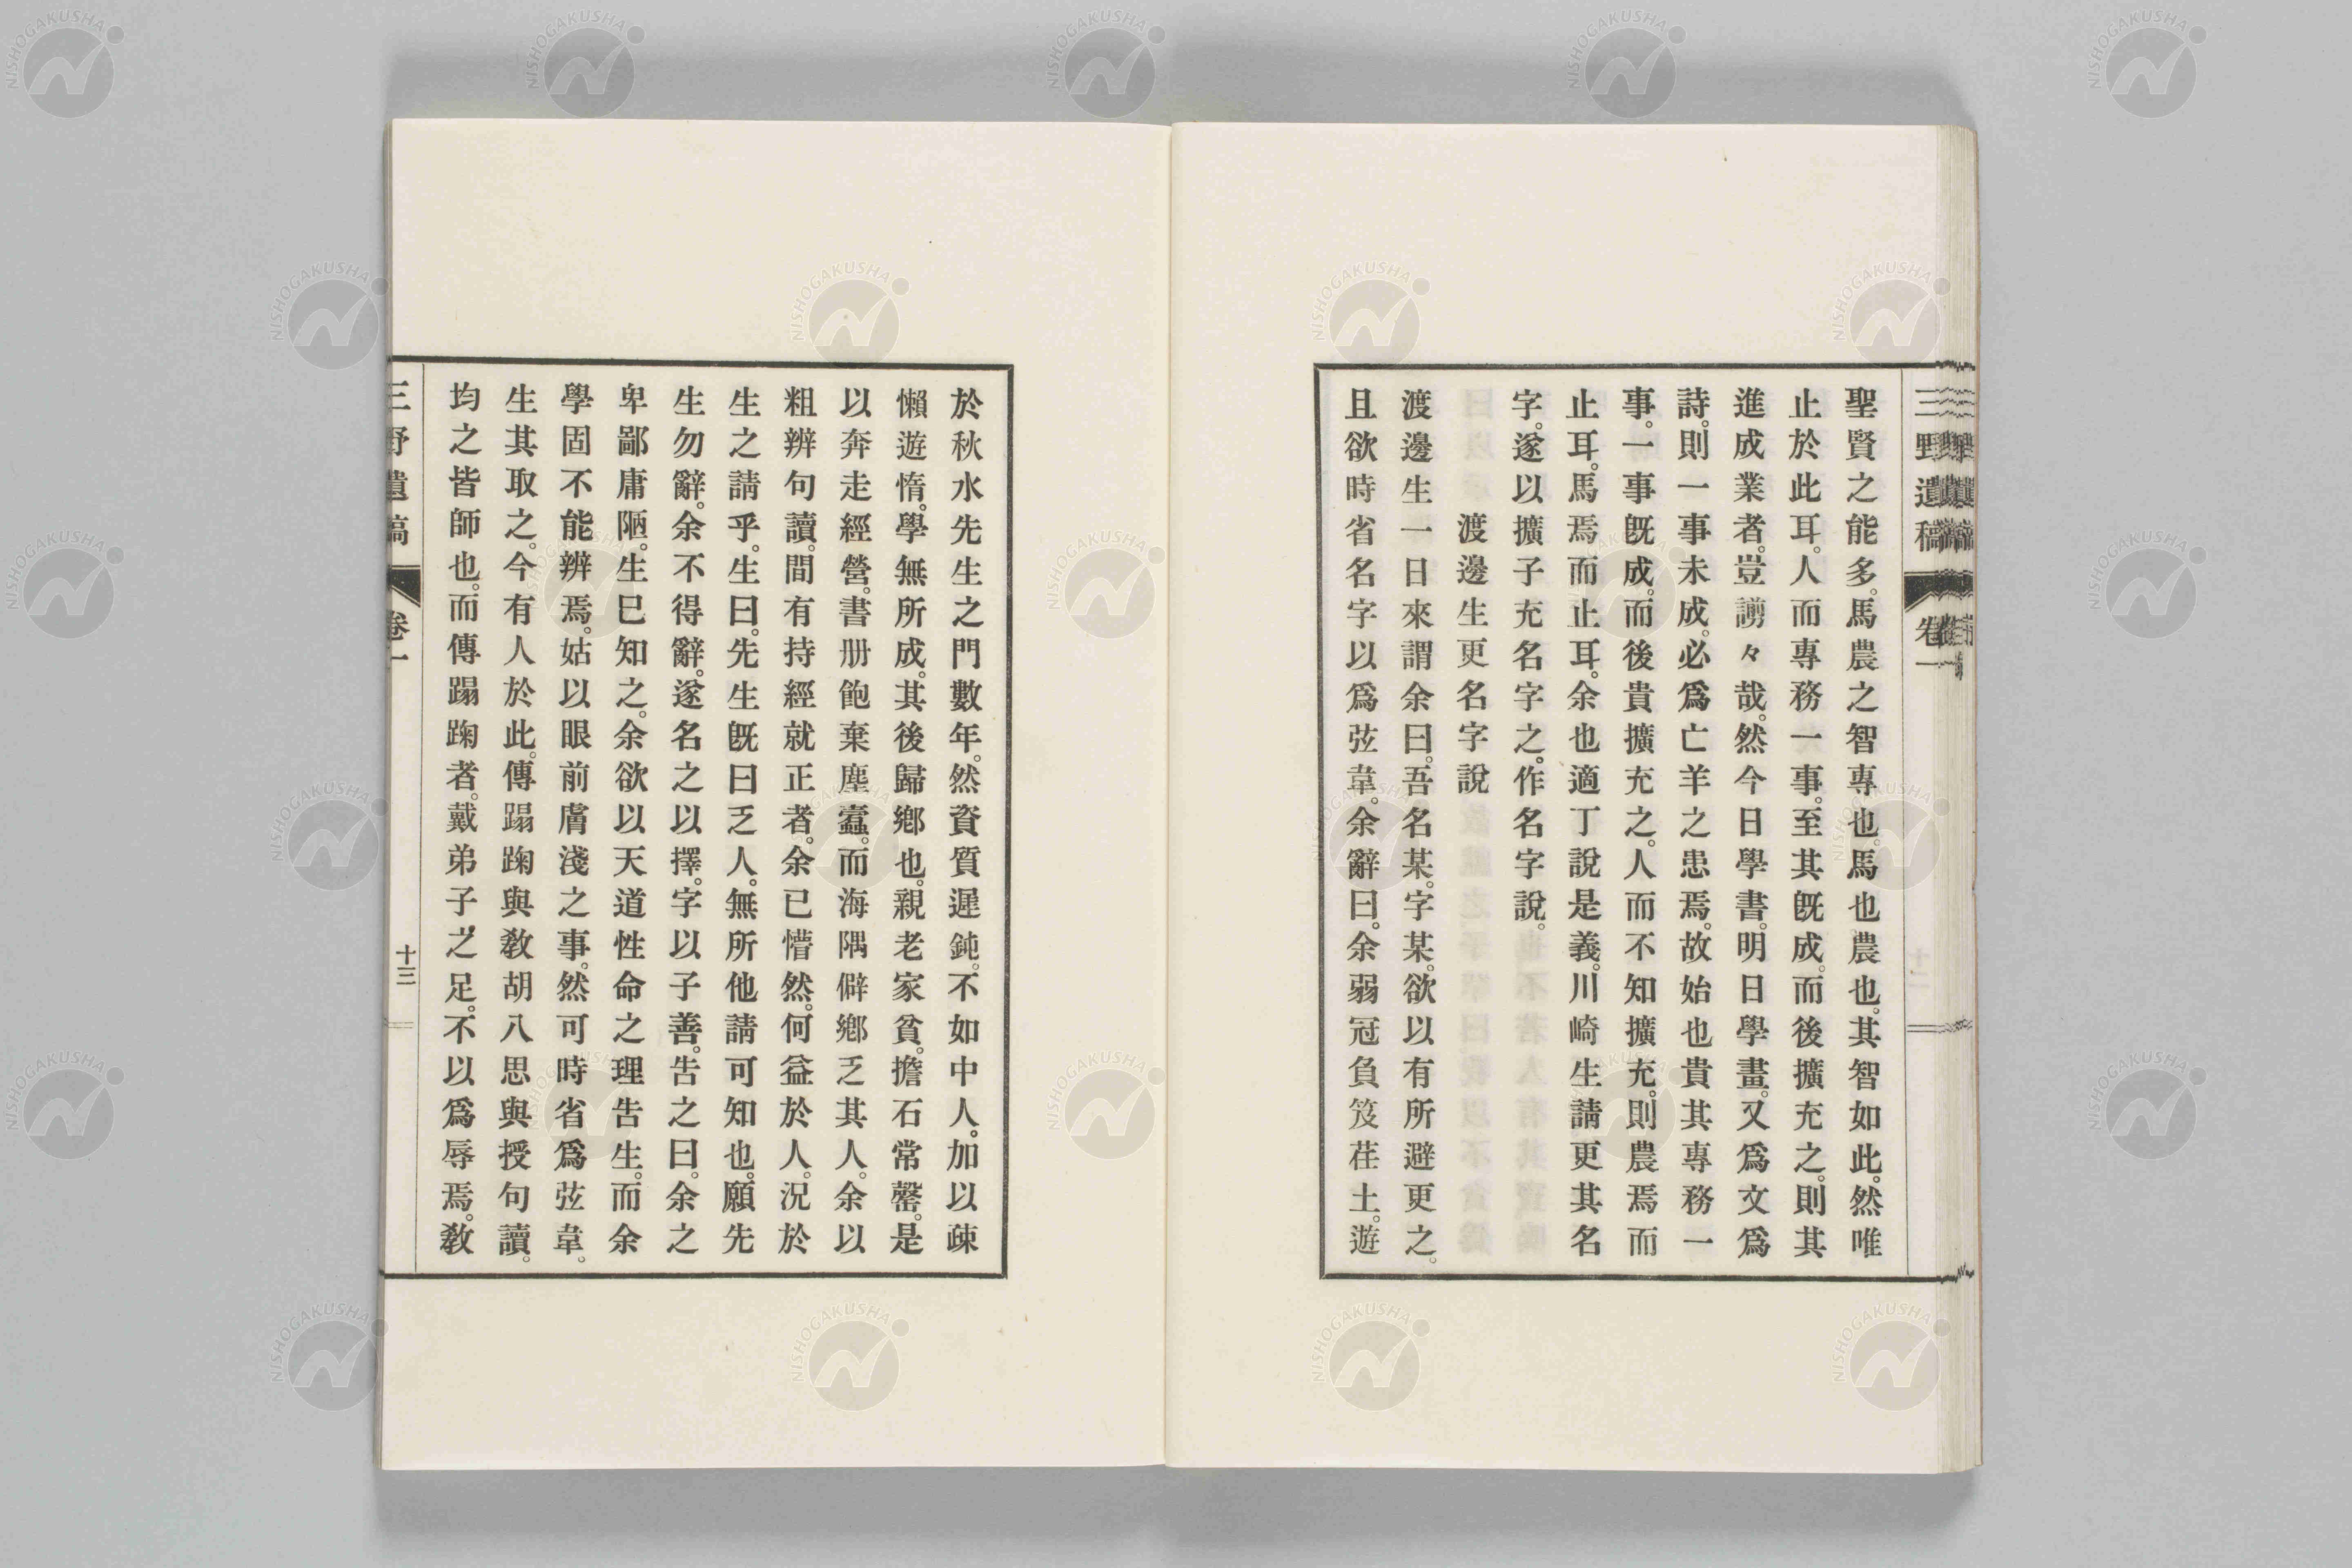 三野遺稿 卷一
聖賢之能多。馬農之智專也。馬也。農也。其智如此。然唯
止於此耳。人而專務一事。至其既成。而後擴充之。則其
進成業者。豈謭々哉。然今日學書。明日學畫。又爲文爲
詩。則一事未成。必爲亡羊之患焉。故始也貴其專務一
事。一事既成。而後貴擴充之。人而不知擴充。則農焉而
止耳。馬焉而止耳。余也適丁說是義。川崎生請更其名
字。遂以擴子充名字之。作名字說。
渡邊生更名字說
渡邊生一日來謂余曰。吾名某。字某。欲以有所避更之。
且欲時省名字以爲弦韋。余辭曰。余弱冠負笈荏土。遊
於秋水先生之門數年。然資質遲鈍。不如中人。加以疎
懶遊惰。學無所成。其後歸鄉也。親老家貧。擔石常罄。是
以奔走經營。書册飽棄塵蠹。而海隅僻鄉乏其人。余以
粗辨句讀。間有持經就正者。余已懵然。何益於人。況於
生之請乎。生曰。先生既曰乏人。無所他請可知也。願先
生勿辭。余不得辭。遂名之以擇。字以子善。告之曰。余之
卑鄙庸陋。生已知之。余欲以天道性命之理告生。而余
學固不能辨焉。姑以眼前膚淺之事。然可時省爲弦韋。
生其取之。今有人於此。傳蹋踘與敎胡八思與授句讀。
均之皆師也。而傳蹋踘者。戴弟子之足。不以爲辱焉。敎
三野遺稿 卷一 十三